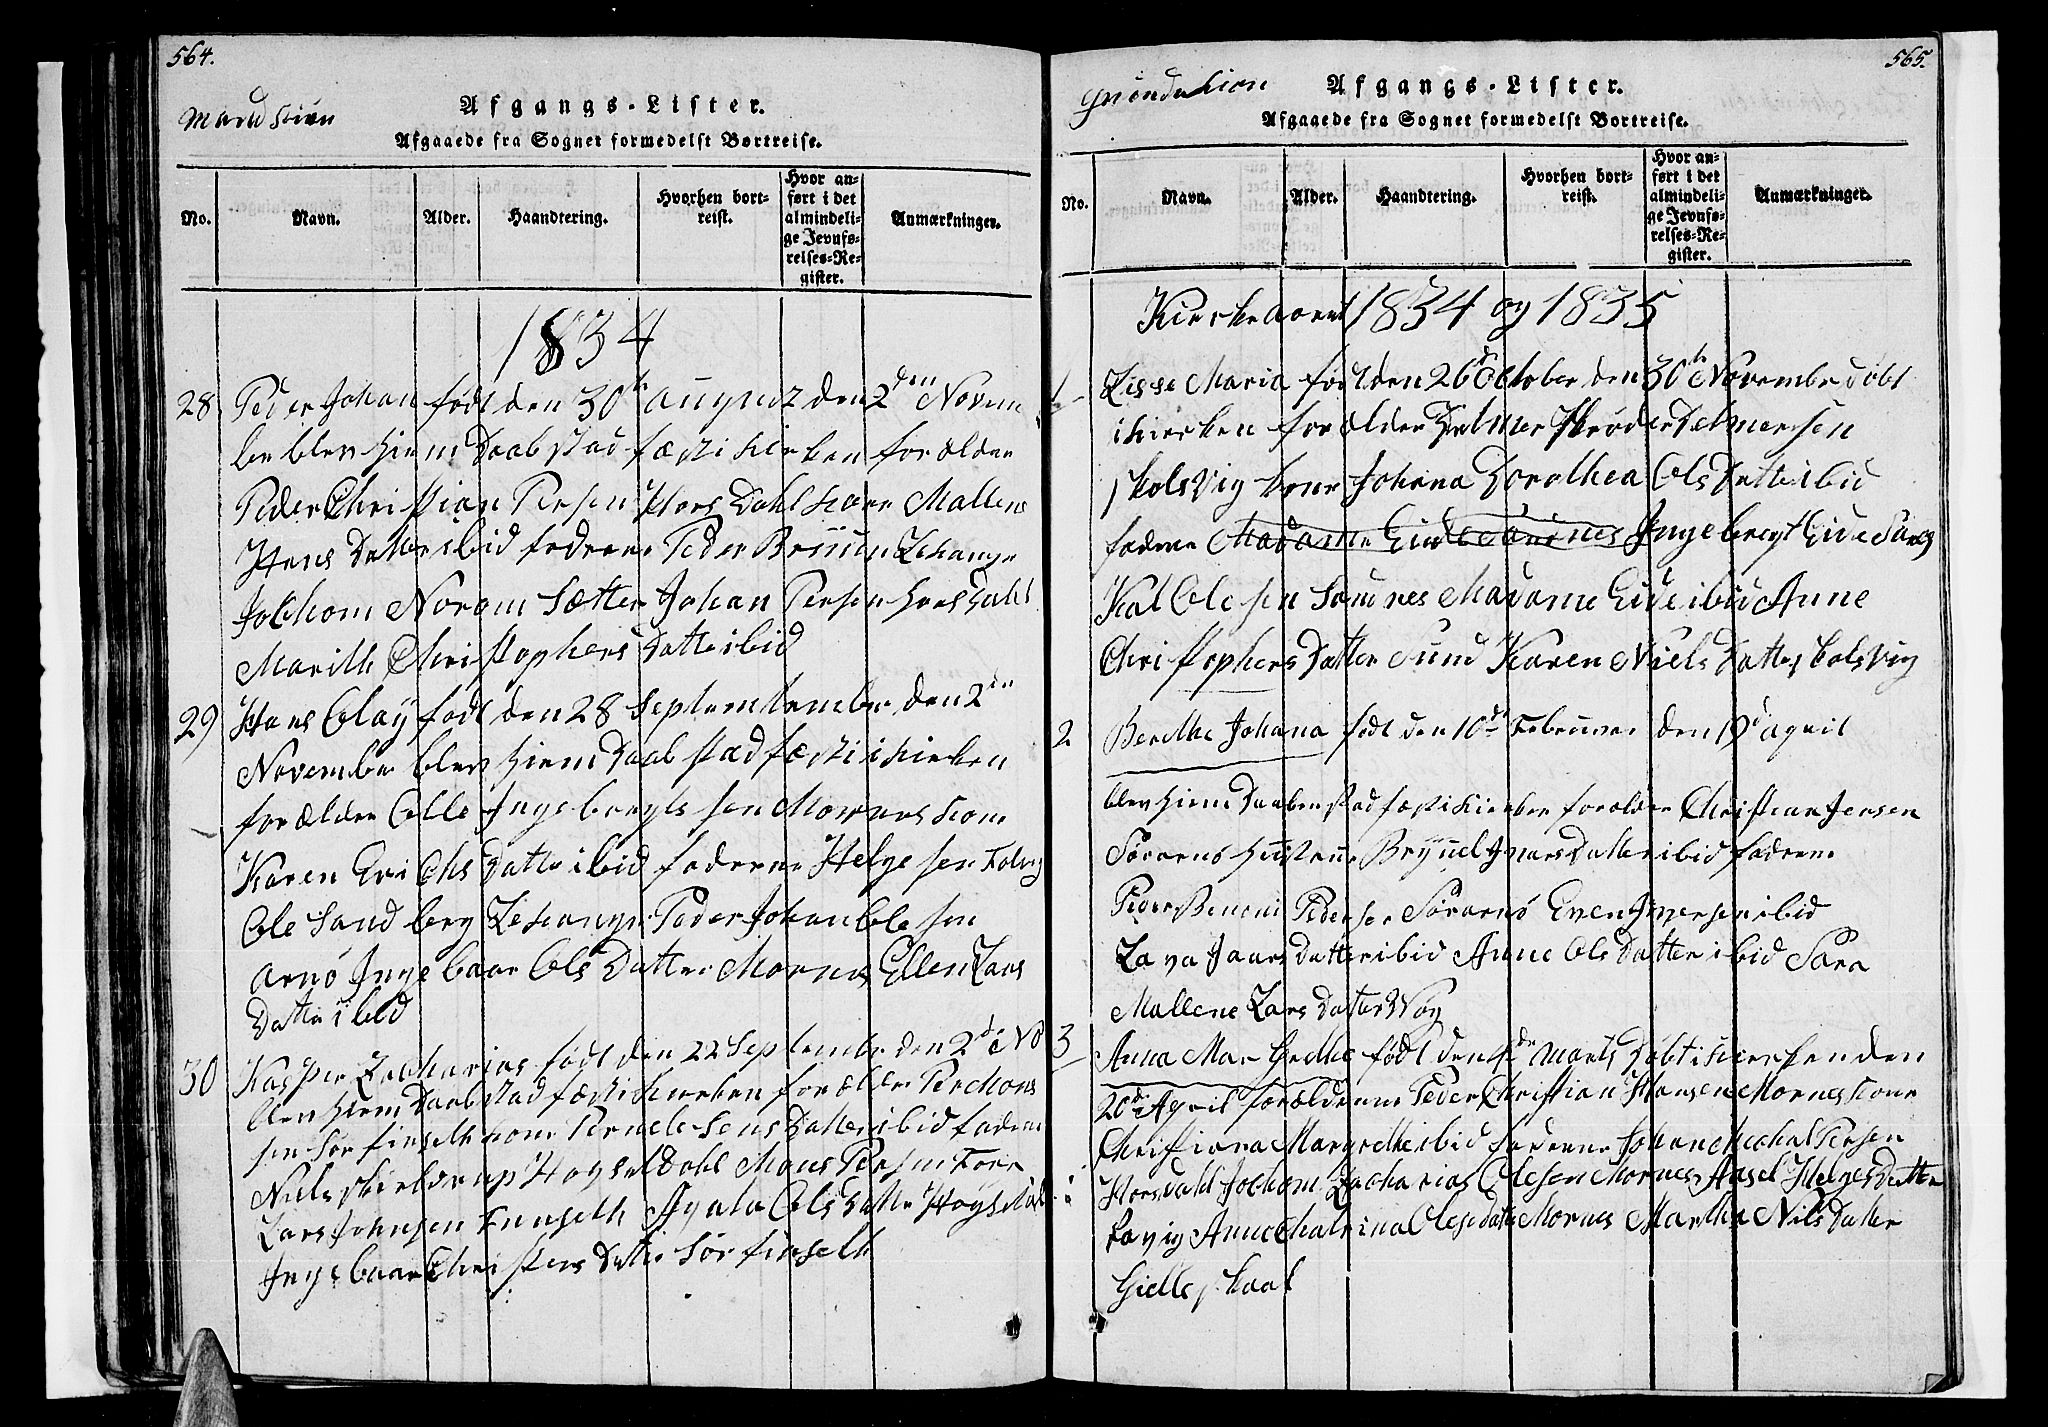 564.
Mandkiøn
Afgangs-Lister.
Afgaaede fra Sognet formedelst Bortreise.
No. Navn. Alder. Haandtering. Hvorhen bortreist. Hvor anført i det almindelige Jevnførelses-Register. Anmærkninger.
1834
28 Peder Johan født den 30te august den 2den Novem
ber blev hiem Daab stadfæst i kirken forældre
Peder Christian Persen Hors Dahl kone Mallene
Hans Datter ibid faderne Peder
Jochom Noram Sætter Johan Persen Horsdahl
Marith Christophers Datter ibid
29 Hans Olay født den 28 Septemtember den 2den
November blev hiem Daab stadfæst i kirken
forældre Olle Ingebregtssen Mornes kone
Karen Erichs Datter ibid faderne Helge sen
Ole Sandberg Peder Johan Olesen
Arnø Ingebaar Ols Datter Mornes Ellen Lars
Datter ibid
30 Kasper Zacharias født den 22 September den 2de No
blev hiem Daab stadfæst i kirken forældre Per Mons
sen Sørfinseth kone Pernele Jens Datter ibid faderne
Niels Skielderup Hogseldahl Mons Persen
Lars Johnsen Finseth Ols Datter
Ingebaar Christens Datter Sørfinseth
565.
Qvindekion
Afgangs-Lister.
Afgaaede fra Sognet formedelst Bortreise.
No. Navn. Alder. Haandtering. Hvorhen bortreist. Hvor anført i det almindelige Jevnførelses-Register. Anmærkninger.
Kierkeaaret 1834 og 1835
1 Lisse Maria født den 26de October den 30te November døbt
i kirken forælder Helmer Skrøder Delmersen
Skolsvig kone Johana Dorothea Ols Datter ibid
faderne Madame Eide Sandnes Ingebregt Eide Sandnes
Kal Olesen Sandnes Madame Eide ibid Anne
Christophers Datter Sund Karen Niels Datter Skolsvig
2 Berethe Johana født den 10de Februar den 19d april
blev hiem Daaben stadfæst i kirken forældre Christian Jensen
Sørarnø Hustrue Brynel Ivars Datter ibid faderne
Peder Benoni Pedersen Sørarnø Even Iversen ibid
Lava Ivars datter ibid Anne Ols Datter ibid Sara
Mallene Lars Datter Vog
3 Anna Mar Grethe født den 4de Marts Døbt i kierken den
20de April forældrene Peder Christian Hansen Mornes kone
Christiana Margrethe ibid faderne Johan Michal Persen
Horsdahl Jochom Zacharias Olesen Mornes Helges Datter
Anne Chatrina Olese datter Mornes Martha Nils Datter
Gielleskaal